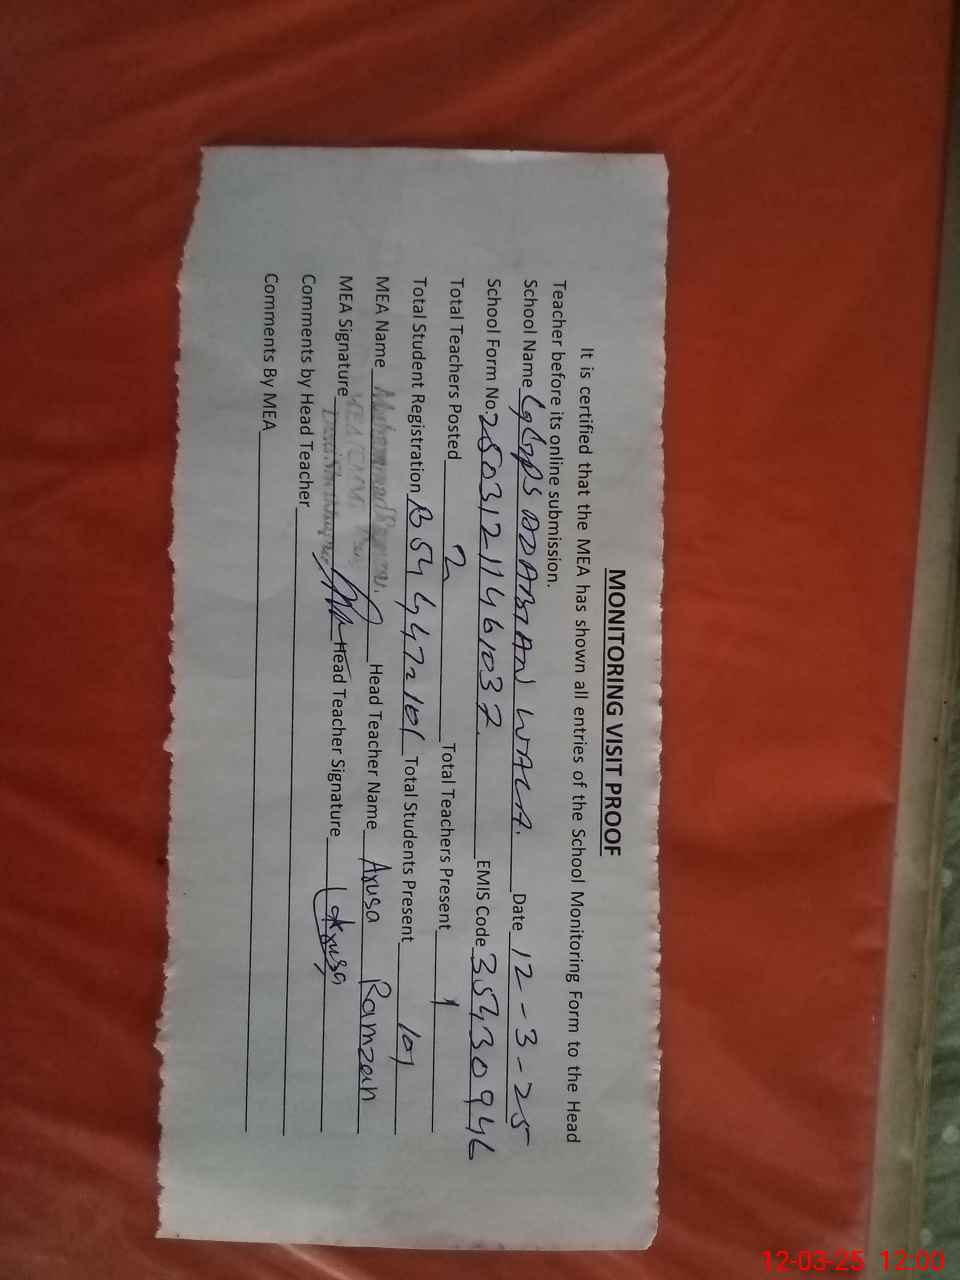 MONITORING VISIT PROOF
It is certified that the MEA has shown all entries of the School Monitoring Form to the Head
Teacher before its online submission.
School Name GGPS ADABIAN WALA. Date 12-3-25
School Form No. 250312114461037 EMIS Code 35430946
Total Teachers Posted 2 Total Teachers Present 1
Total Student Registration B 54 G 47=101 Total Students Present 101
MEA Name Muhammad Head Teacher Name Arusa Ramzan
MEA Signature Head Teacher Signature Arusa
Comments by Head Teacher
Comments By MEA
12-03-25 12:00